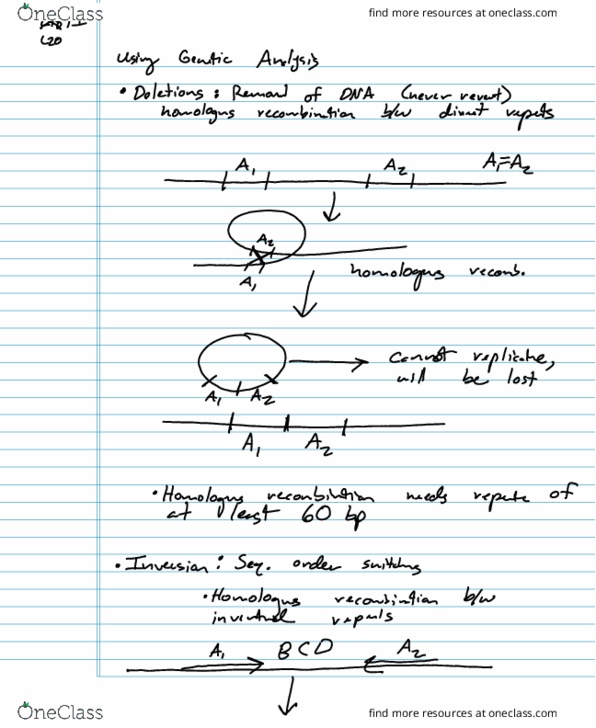 OneClass
find more resources at oneclass.com
L20
Using Genetic Analysis
• Deletions : Removal of DNA (never revert)
homologus recombintion b/w direct repets
A₁ A₂ A₁=A₂
A₂
A₁
homologus recomb.
cannot replicate,
will be lost
A₁ A₂
A₁ A₂
• Homologus recombintion needs repeats of
at least 60 bp
• Inversion : Seq. order switching
• Homologus recombintion b/w
inverted repeats
A₁ B C D A₂
OneClass
find more resources at oneclass.com